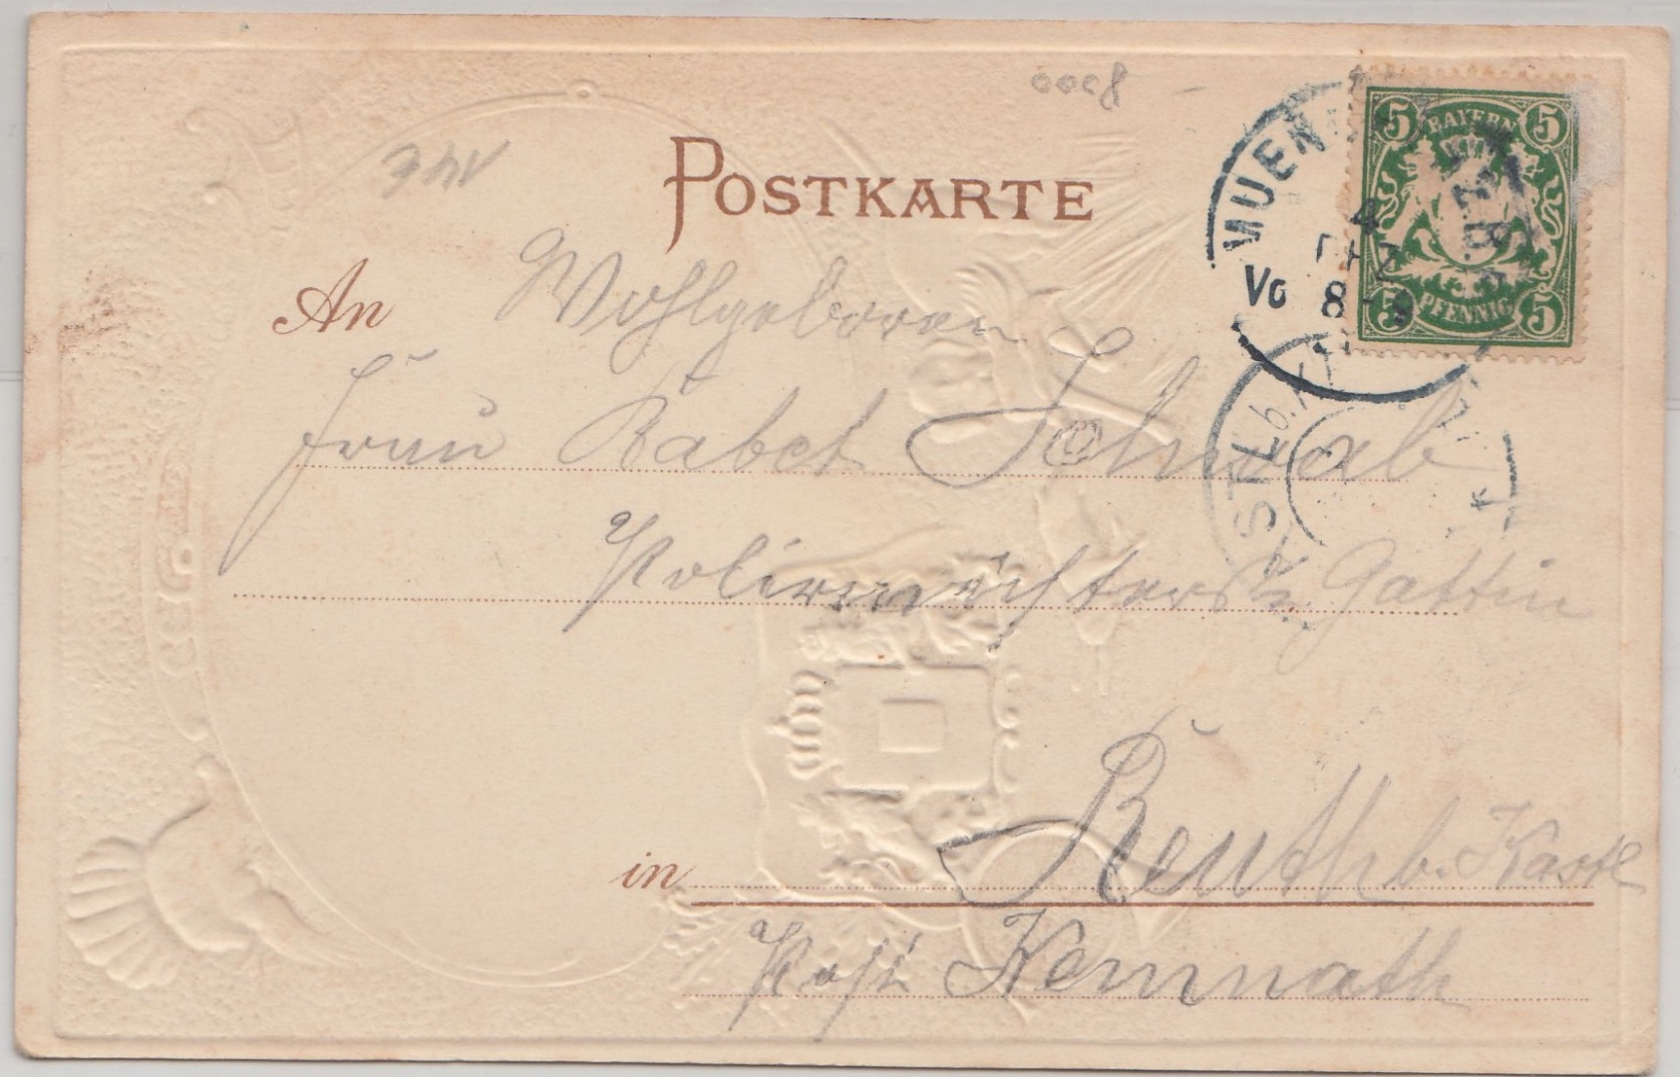 POSTKARTE
BAYERN
5 5
PFENNIG
5 5
MUEN
4
DEZ
Vo 8-9
An Wohlgeboren
Frau Babet Schwab
Gattin
in Reuth b. Kastl
Post Kemnath
KASTL b.